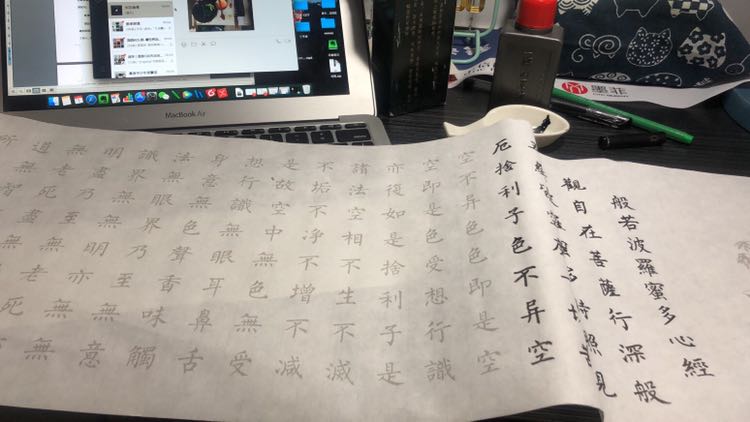 般若波羅蜜多心經
觀自在菩薩行深般
波羅蜜多時照見
厄捨利子色不异空
空不异色色即是空
空即是色受想行識
亦復如是捨利子是
諸法空相不生不滅
不垢不净不增不减
是故空中無色無受
想行識無眼耳鼻舌
身意無色聲香味觸
法無眼界乃至無意
識界無無明亦無無
明盡乃至無老死
無老死盡
道無
所
MacBook Air
墨菲